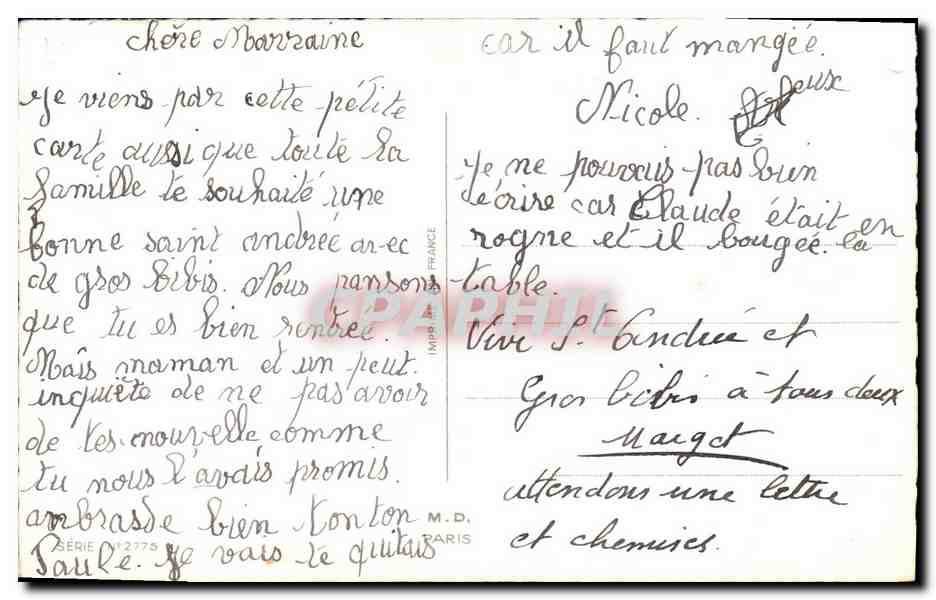 chère Marraine
Je viens par cette pétite
carte aussi que toute la
famille te souhaité une
bonne saint andrée avec
de gros bibis. Nous pansons
que tu es bien rentrée.
Mais maman et un peut.
inquiéte de ne pas avoir
de tes nouvelle comme
tu nous l'avais promis.
ambrasse bien tonton
Paule. Je vais te quitais
SÉRIE N° 2775
M.D.
PARIS
IMPRIMÉ EN FRANCE
car il faut mangée.
Nicole.
Je ne pouvais pas bien
écrire car Claude était en
rogne et il bougée la
table.
Vive St Andrée et
Gros bibis à tous deux
Margot
attendons une lettre
et chemises.
CPAPHIL